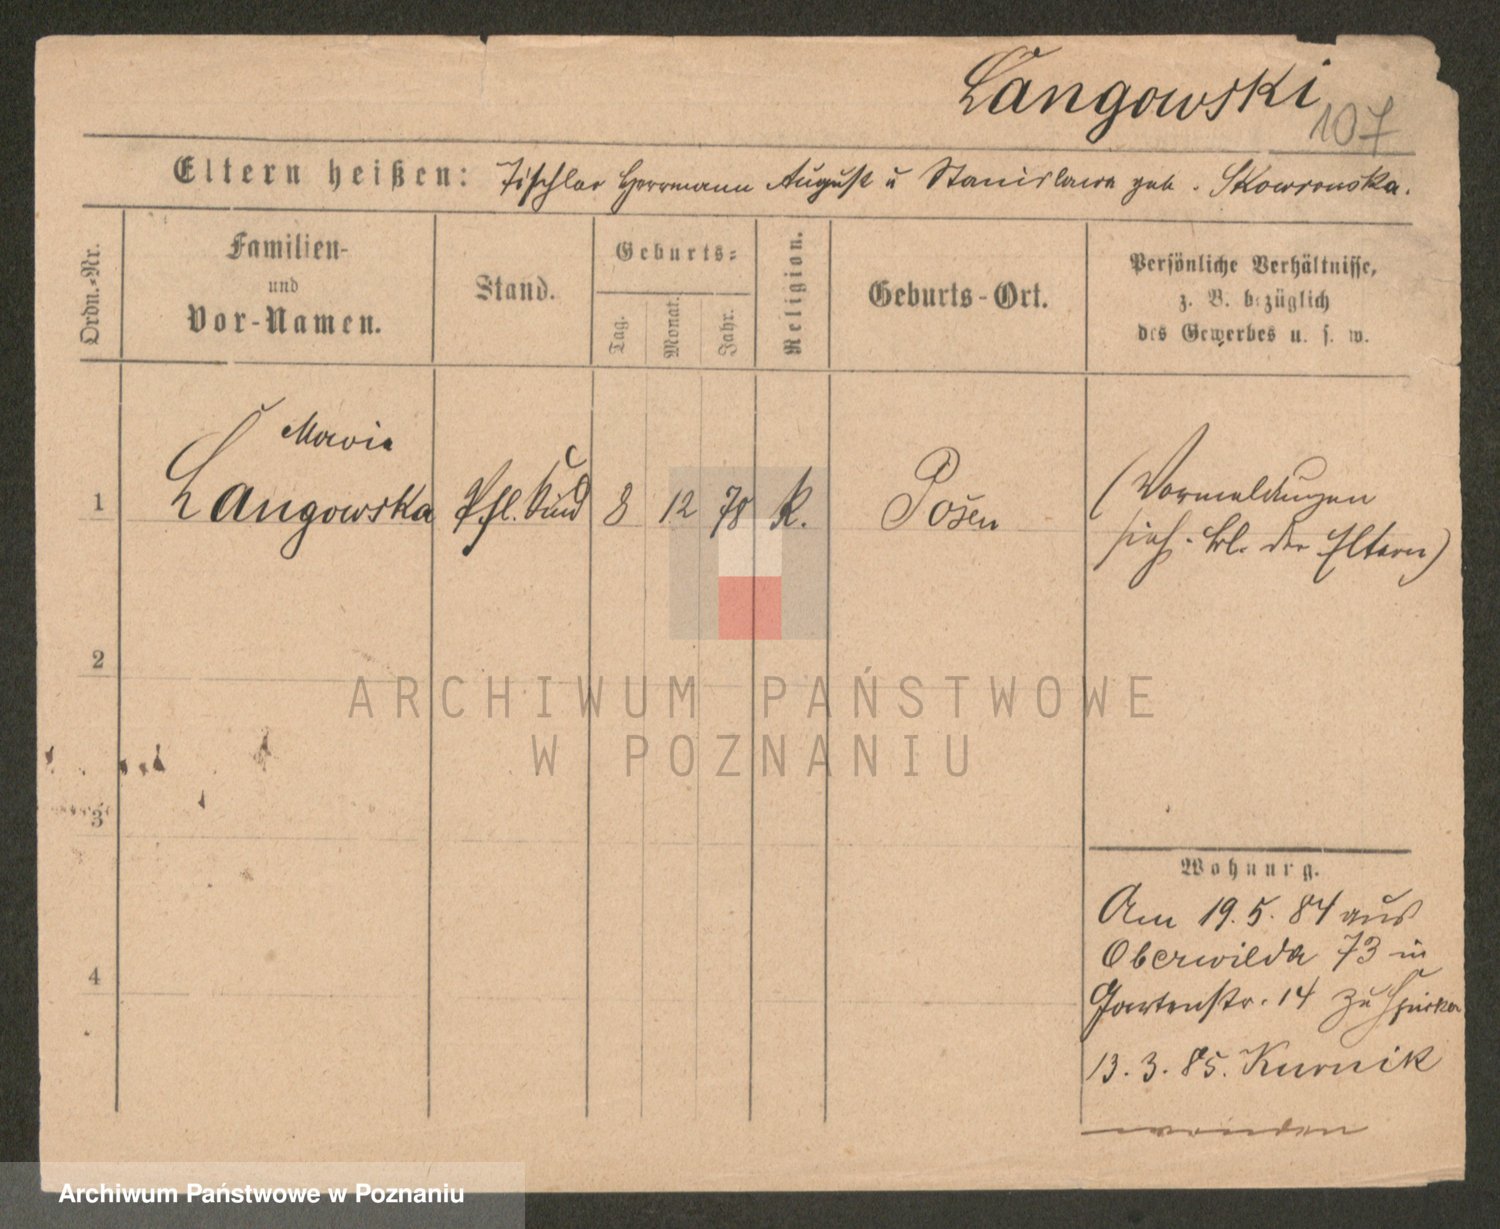 Langowski
107
Eltern heißen: Tischler Herrmann August u Stanislawa geb. Skowronska.
Ordn.-Nr.
Familien-
und
Vor-Namen.
Stand.
Geburts-
Tag.
Monat.
Jahr.
Religion.
Geburts-Ort.
Persönliche Verhältnisse,
z. B. bezüglich
des Gewerbes u. s. w.
Maria
1 Langowska Pfl. Kind 8 12 78 K. Posen
(Vormeldungen
sieh. bl. der Eltern)
2
ARCHIWUM PAŃSTWOWE
W POZNANIU
3
Wohnung.
Am 19. 5. 84 aus
Oberwilda 73 in
4
Gartenstr. 14 zu
13. 3. 85. Kurnik
Archiwum Państwowe w Poznaniu